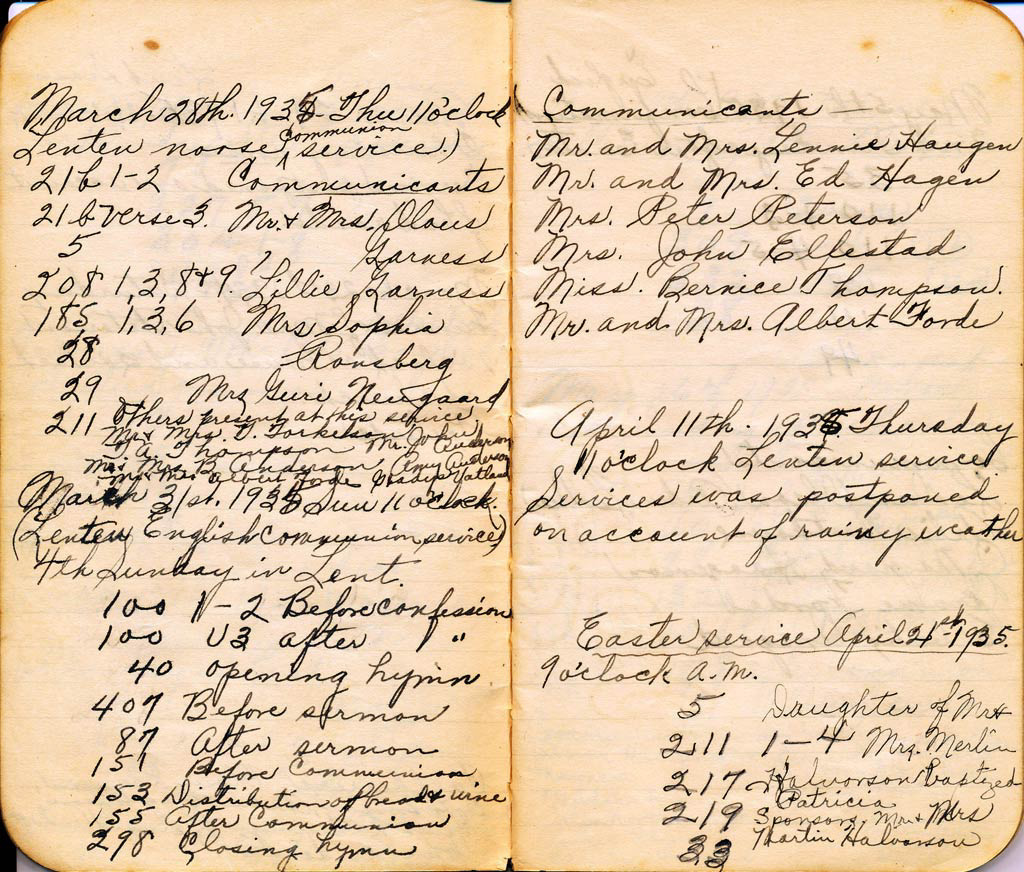 March 28th. 1935 Thu 11 o'clock
Lenten norse Communion service.)
216 1-2 Communicants
216 Verse 3. Mr. & Mrs. Olaus
5 Garness
208 1, 2, 8 & 9. Lillie Garness
185 1, 3, 6 Mrs Sophia
28 Ronsberg
29 Mrs Guri Neugaard
211 Others present at this service
Mr & Mrs. O. Torkelson Mr. John Anderson
T. A. Thompson
Mr & Mrs B. Anderson, Amy Anderson
Mr & Mrs Albert Forde
March 31st. 1935 Sun 11 o'clock.
(Lenten English Communion service)
4th Sunday in Lent.
100 1-2 Before confession
100 V3 after "
40 opening hymn
407 Before sermon
87 After sermon
151 Before Communion
153 Distribution of bread & wine
155 After Communion
298 Closing hymn
Communicants
Mr. and Mrs. Lennie Haugen
Mr. and Mrs. Ed Hagen
Mrs. Peter Peterson
Mrs. John Ellestad
Miss. Bernice Thompson.
Mr. and Mrs. Albert Forde
April 11th. 1935 Thursday
11 o'clock Lenten service.
Services was postponed
on account of rainy weather
Easter service April 21st 1935.
9 o'clock A.M.
5 Daughter of Mr &
211 1-4 Mrs. Merlin
217 Halvorson baptized
Patricia
219 Sponsors Mr & Mrs
Martin Halvorson
33